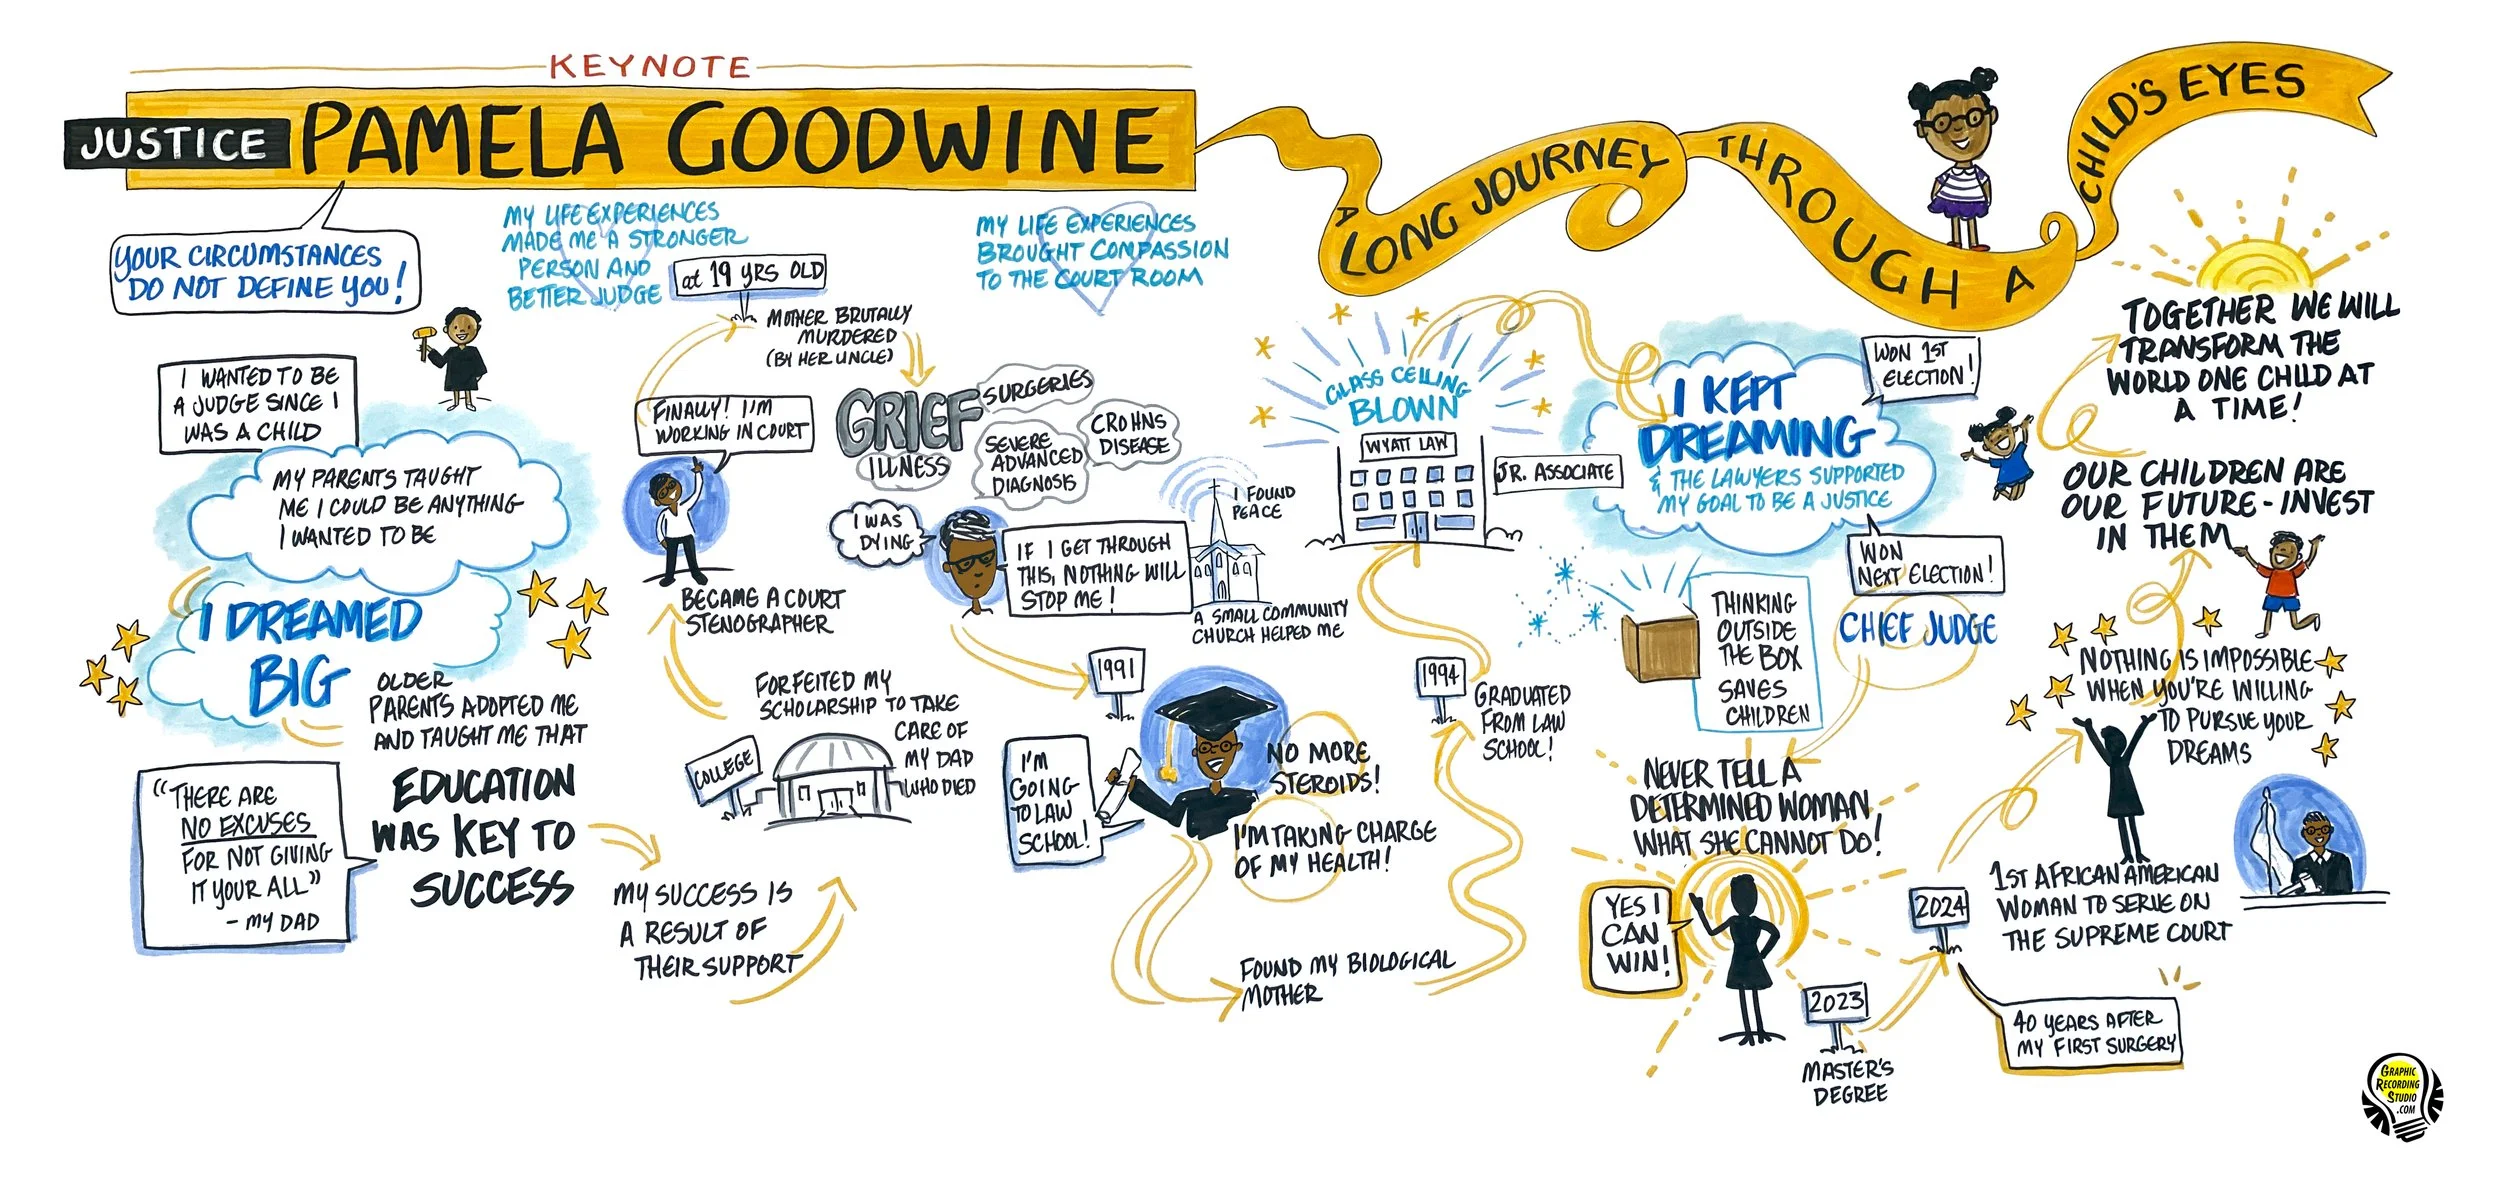 KEYNOTE
JUSTICE
PAMELA GOODWINE
A LONG JOURNEY THROUGH A CHILD'S EYES
YOUR CIRCUMSTANCES
DO NOT DEFINE YOU!
MY LIFE EXPERIENCES
MADE ME A STRONGER
PERSON AND
BETTER JUDGE
MY LIFE EXPERIENCES
BROUGHT COMPASSION
TO THE COURT ROOM
I WANTED TO BE
A JUDGE SINCE I
WAS A CHILD
MY PARENTS TAUGHT
ME I COULD BE ANYTHING
I WANTED TO BE
I DREAMED
BIG
OLDER
PARENTS ADOPTED ME
AND TAUGHT ME THAT
EDUCATION
WAS KEY TO
SUCCESS
"THERE ARE
NO EXCUSES
FOR NOT GIVING
IT YOUR ALL"
- MY DAD
MY SUCCESS IS
A RESULT OF
THEIR SUPPORT
COLLEGE
FORFEITED MY
SCHOLARSHIP TO TAKE
CARE OF
MY DAD
WHO DIED
BECAME A COURT
STENOGRAPHER
FINALLY! I'M
WORKING IN COURT
at 19 YRS OLD
MOTHER BRUTALLY
MURDERED
(BY HER UNCLE)
GRIEF
SURGERIES
ILLNESS
SEVERE
ADVANCED
DIAGNOSIS
CROHNS
DISEASE
I WAS
DYING
IF I GET THROUGH
THIS, NOTHING WILL
STOP ME!
I FOUND
PEACE
A SMALL COMMUNITY
CHURCH HELPED ME
1991
I'M
GOING
TO LAW
SCHOOL!
NO MORE
STEROIDS!
I'M TAKING CHARGE
OF MY HEALTH!
FOUND MY BIOLOGICAL
MOTHER
1994
GRADUATED
FROM LAW
SCHOOL!
GLASS CEILING
BLOWN
WYATT LAW
JR. ASSOCIATE
I KEPT
DREAMING
& THE LAWYERS SUPPORTED
MY GOAL TO BE A JUSTICE
WON 1ST
ELECTION!
WON
NEXT ELECTION!
CHIEF JUDGE
THINKING
OUTSIDE
THE BOX
SAVES
CHILDREN
NEVER TELL A
DETERMINED WOMAN
WHAT SHE CANNOT DO!
YES I
CAN
WIN!
2023
MASTER'S
DEGREE
2024
40 YEARS AFTER
MY FIRST SURGERY
1ST AFRICAN AMERICAN
WOMAN TO SERVE ON
THE SUPREME COURT
NOTHING IS IMPOSSIBLE
WHEN YOU'RE WILLING
TO PURSUE YOUR
DREAMS
OUR CHILDREN ARE
OUR FUTURE - INVEST
IN THEM
TOGETHER WE WILL
TRANSFORM THE
WORLD ONE CHILD AT
A TIME!
GRAPHIC
RECORDING
STUDIO
.COM